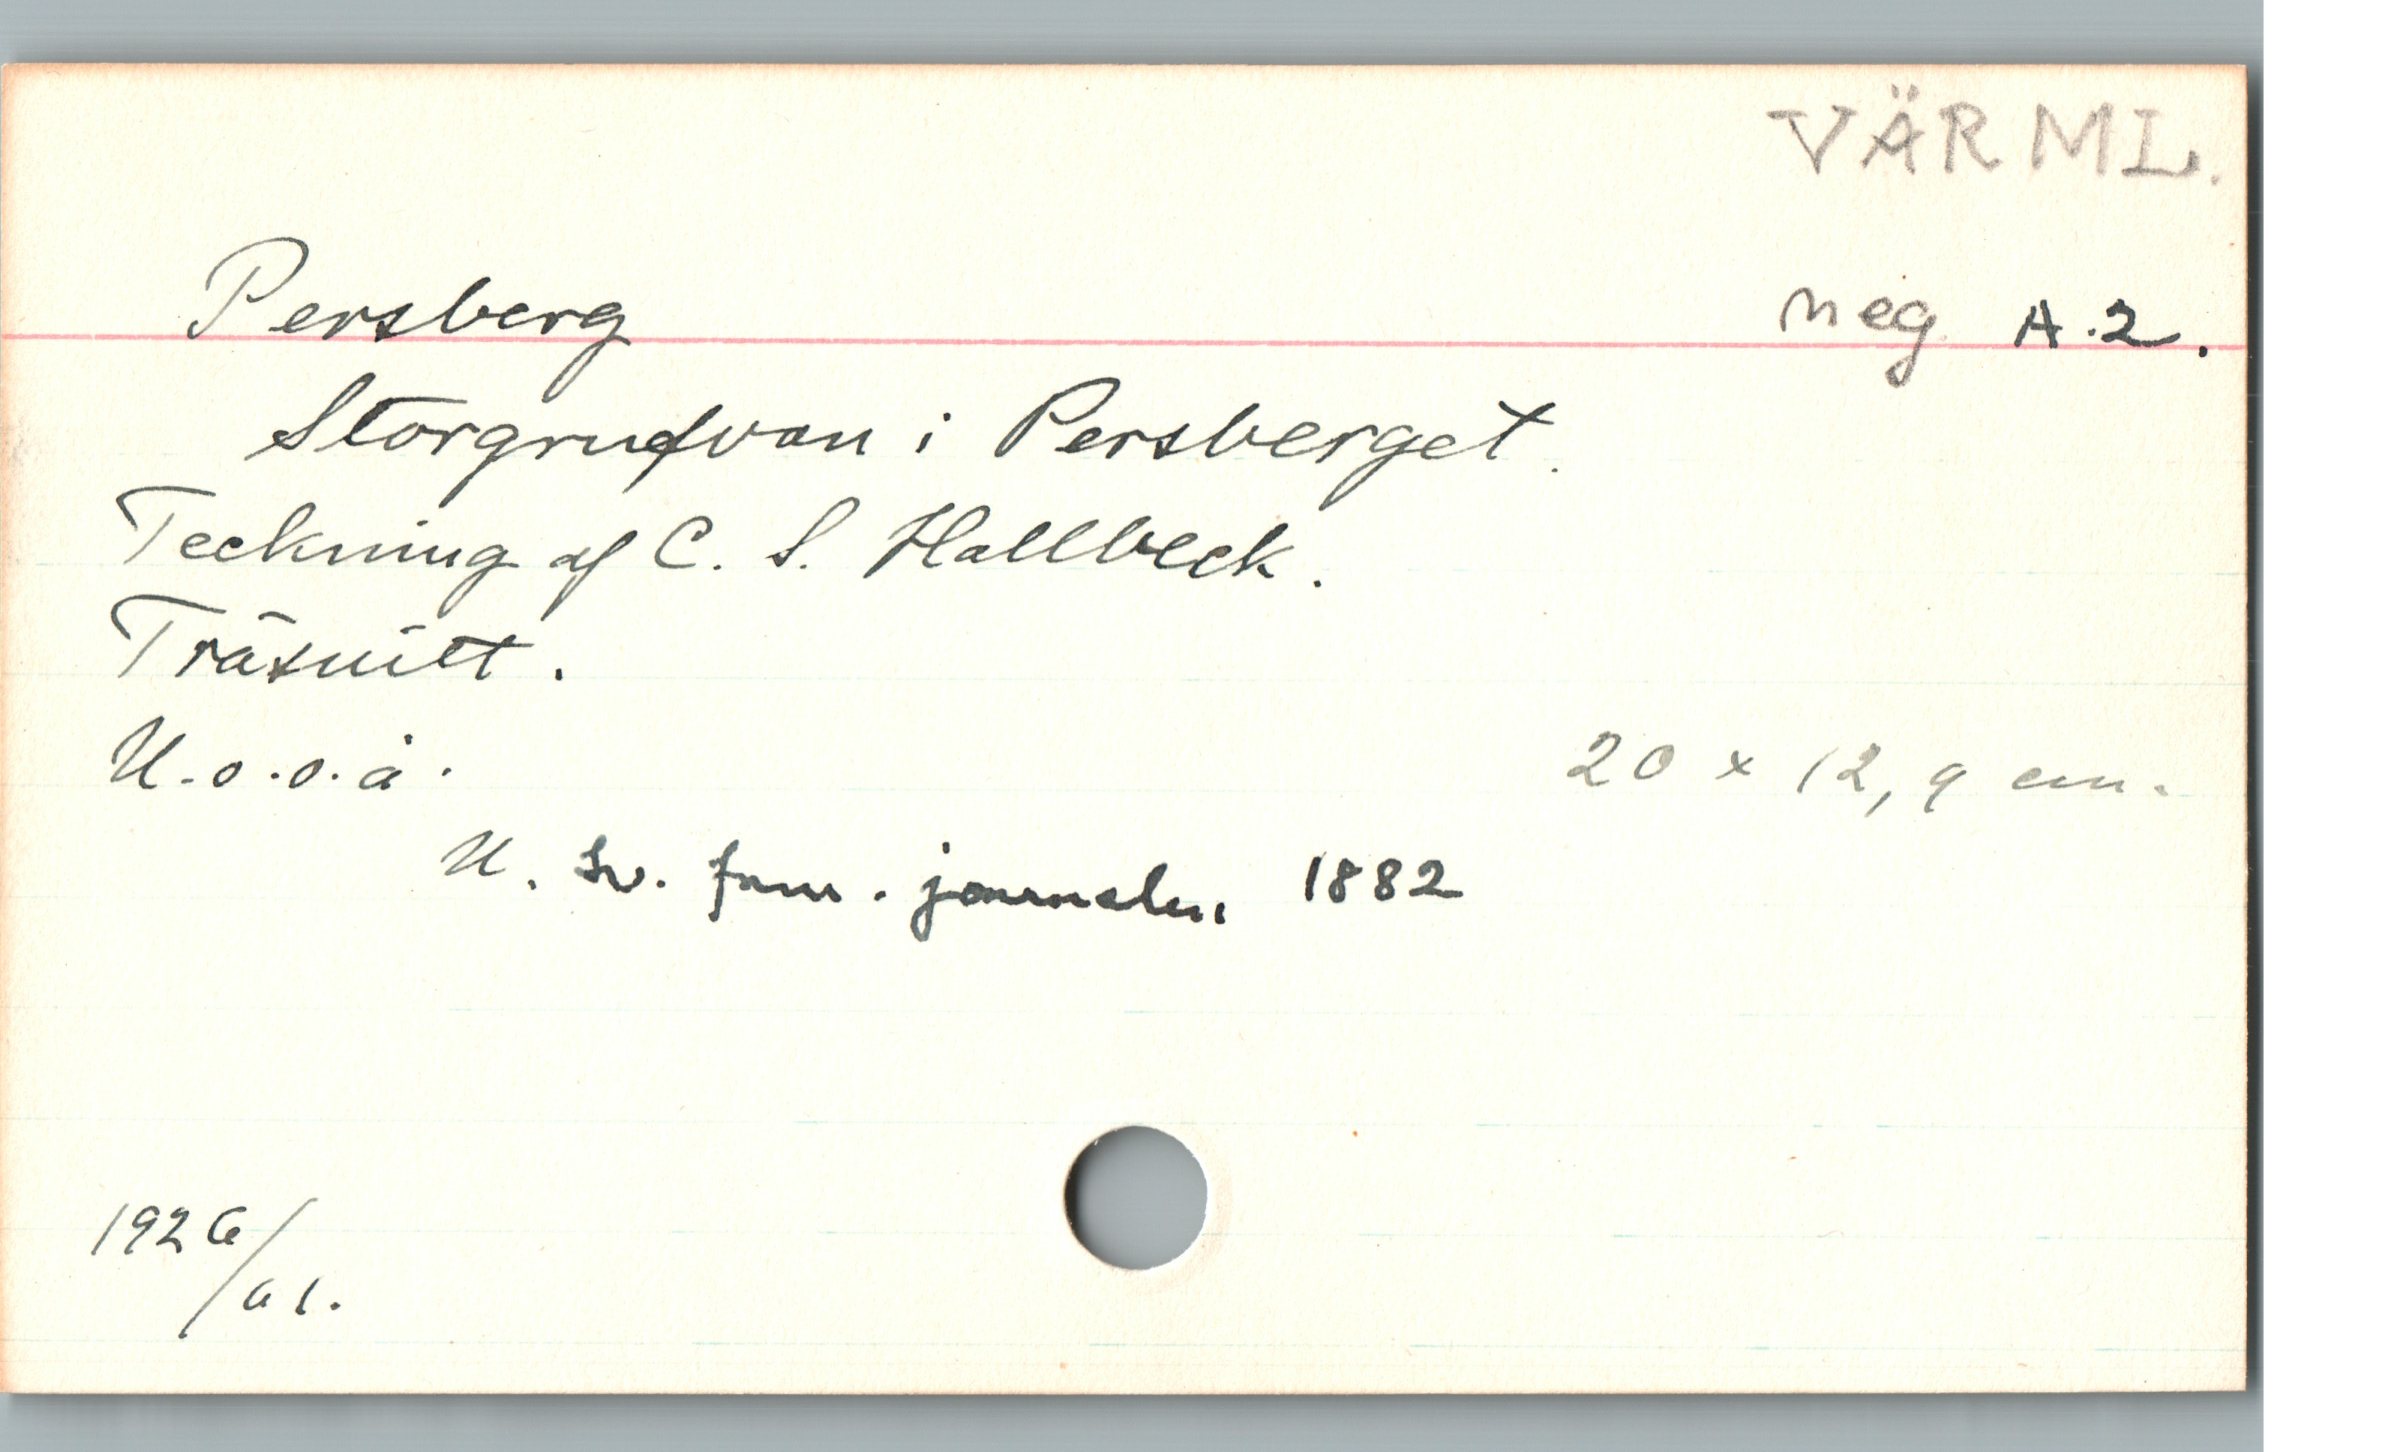 VÄRML.
Persberg neg. A.2.
Storgrufvan i Persberget.
Teckning af C. S. Hallbeck.
Träsnitt.
U.o.o.å. 20 x 12,9 cm.
U. Sv. fam. journalen. 1882
1926/
61.